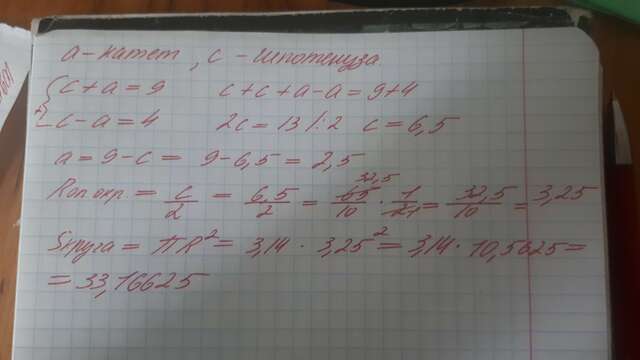 а - катет, с - гипотенуза
{ с + а = 9     с + с + а - а = 9 + 4
с - а = 4     2с = 13 /:2   с = 6,5
а = 9 - с = 9 - 6,5 = 2,5
Rоп.окр. = с/2 = 6,5/2 = 65/10 · 1/2 = 32,5/10 = 3,25
Sкруга = πR² = 3,14 · 3,25² = 3,14 · 10,5625 =
= 33,16625